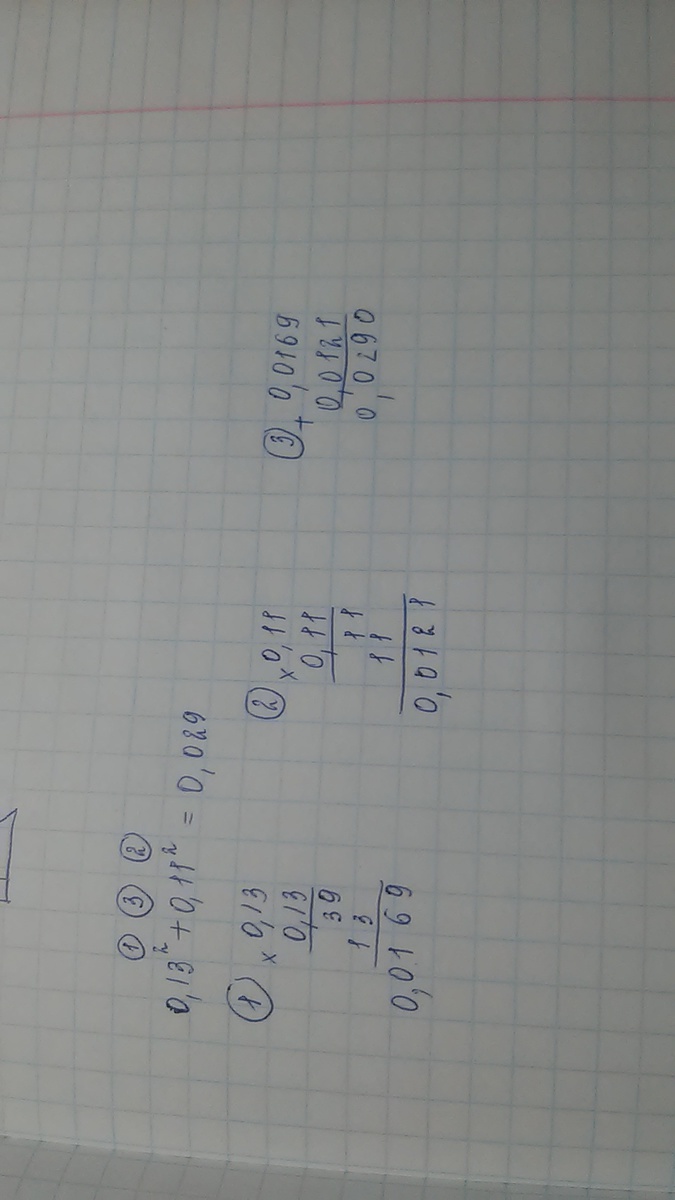 ① ③ ②
0,13² + 0,11² = 0,029
① × 0,13
0,13
39
13
0,0169
② × 0,11
0,11
11
11
0,0121
③ + 0,0169
0,0121
0,0290